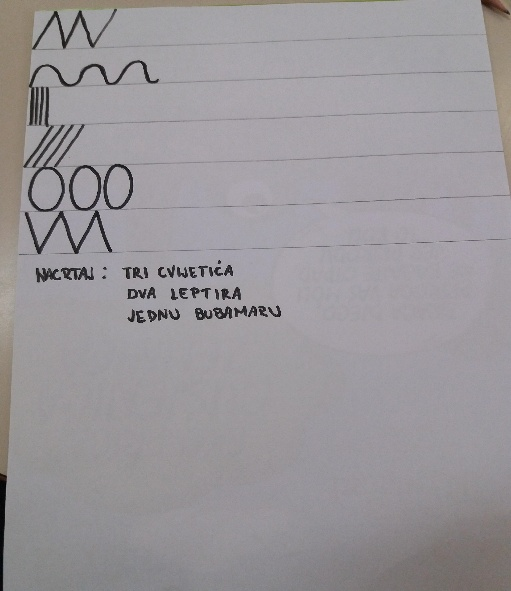 NACRTAJ: TRI CVIJETIĆA
DVA LEPTIRA
JEDNU BUBAMARU